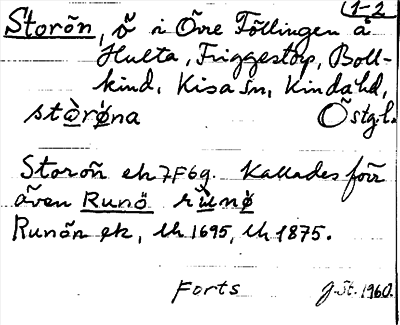 1-2
Storön, ö i Övre Föllingen å
Hulta, Friggestorp, Boll-
kind, Kisa sn, Kinda hd,
stòrø̀na Östg.l.
Storön ek 7F6g. Kallades förr
även Runö rùnø
Runön ek, lk 1695, lk 1875.
Forts J.St. 1960.